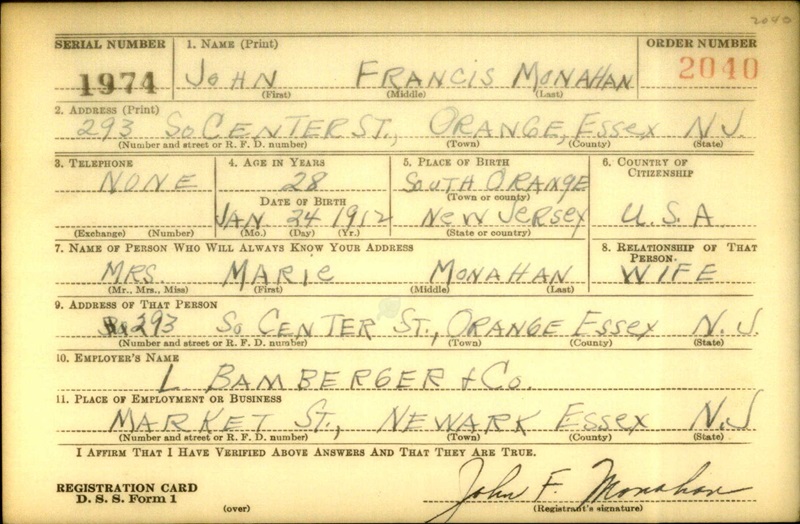 2040
SERIAL NUMBER 1. NAME (Print) ORDER NUMBER
1974 JOHN FRANCIS MONAHAN 2040
(First) (Middle) (Last)
2. ADDRESS (Print)
293 So CENTER ST., ORANGE, Essex N.J.
(Number and street or R. F. D. number) (Town) (County) (State)
3. TELEPHONE 4. AGE IN YEARS 5. PLACE OF BIRTH 6. COUNTRY OF CITIZENSHIP
NONE 28 SOUTH ORANGE
DATE OF BIRTH (Town or county)
JAN 24 1912 NEW JERSEY U.S.A
(Exchange) (Number) (Mo.) (Day) (Yr.) (State or country)
7. NAME OF PERSON WHO WILL ALWAYS KNOW YOUR ADDRESS 8. RELATIONSHIP OF THAT PERSON
MRS. MARIE MONAHAN WIFE
(Mr., Mrs., Miss) (First) (Middle) (Last)
9. ADDRESS OF THAT PERSON
293 So CENTER ST., ORANGE Essex N.J.
(Number and street or R. F. D. number) (Town) (County) (State)
10. EMPLOYER'S NAME
L BAMBERGER + Co.
11. PLACE OF EMPLOYMENT OR BUSINESS
MARKET ST., NEWARK Essex N.J
(Number and street or R. F. D. number) (Town) (County) (State)
I AFFIRM THAT I HAVE VERIFIED ABOVE ANSWERS AND THAT THEY ARE TRUE.
REGISTRATION CARD
D. S. S. Form 1 John F. Monahan
(over) (Registrant's signature)